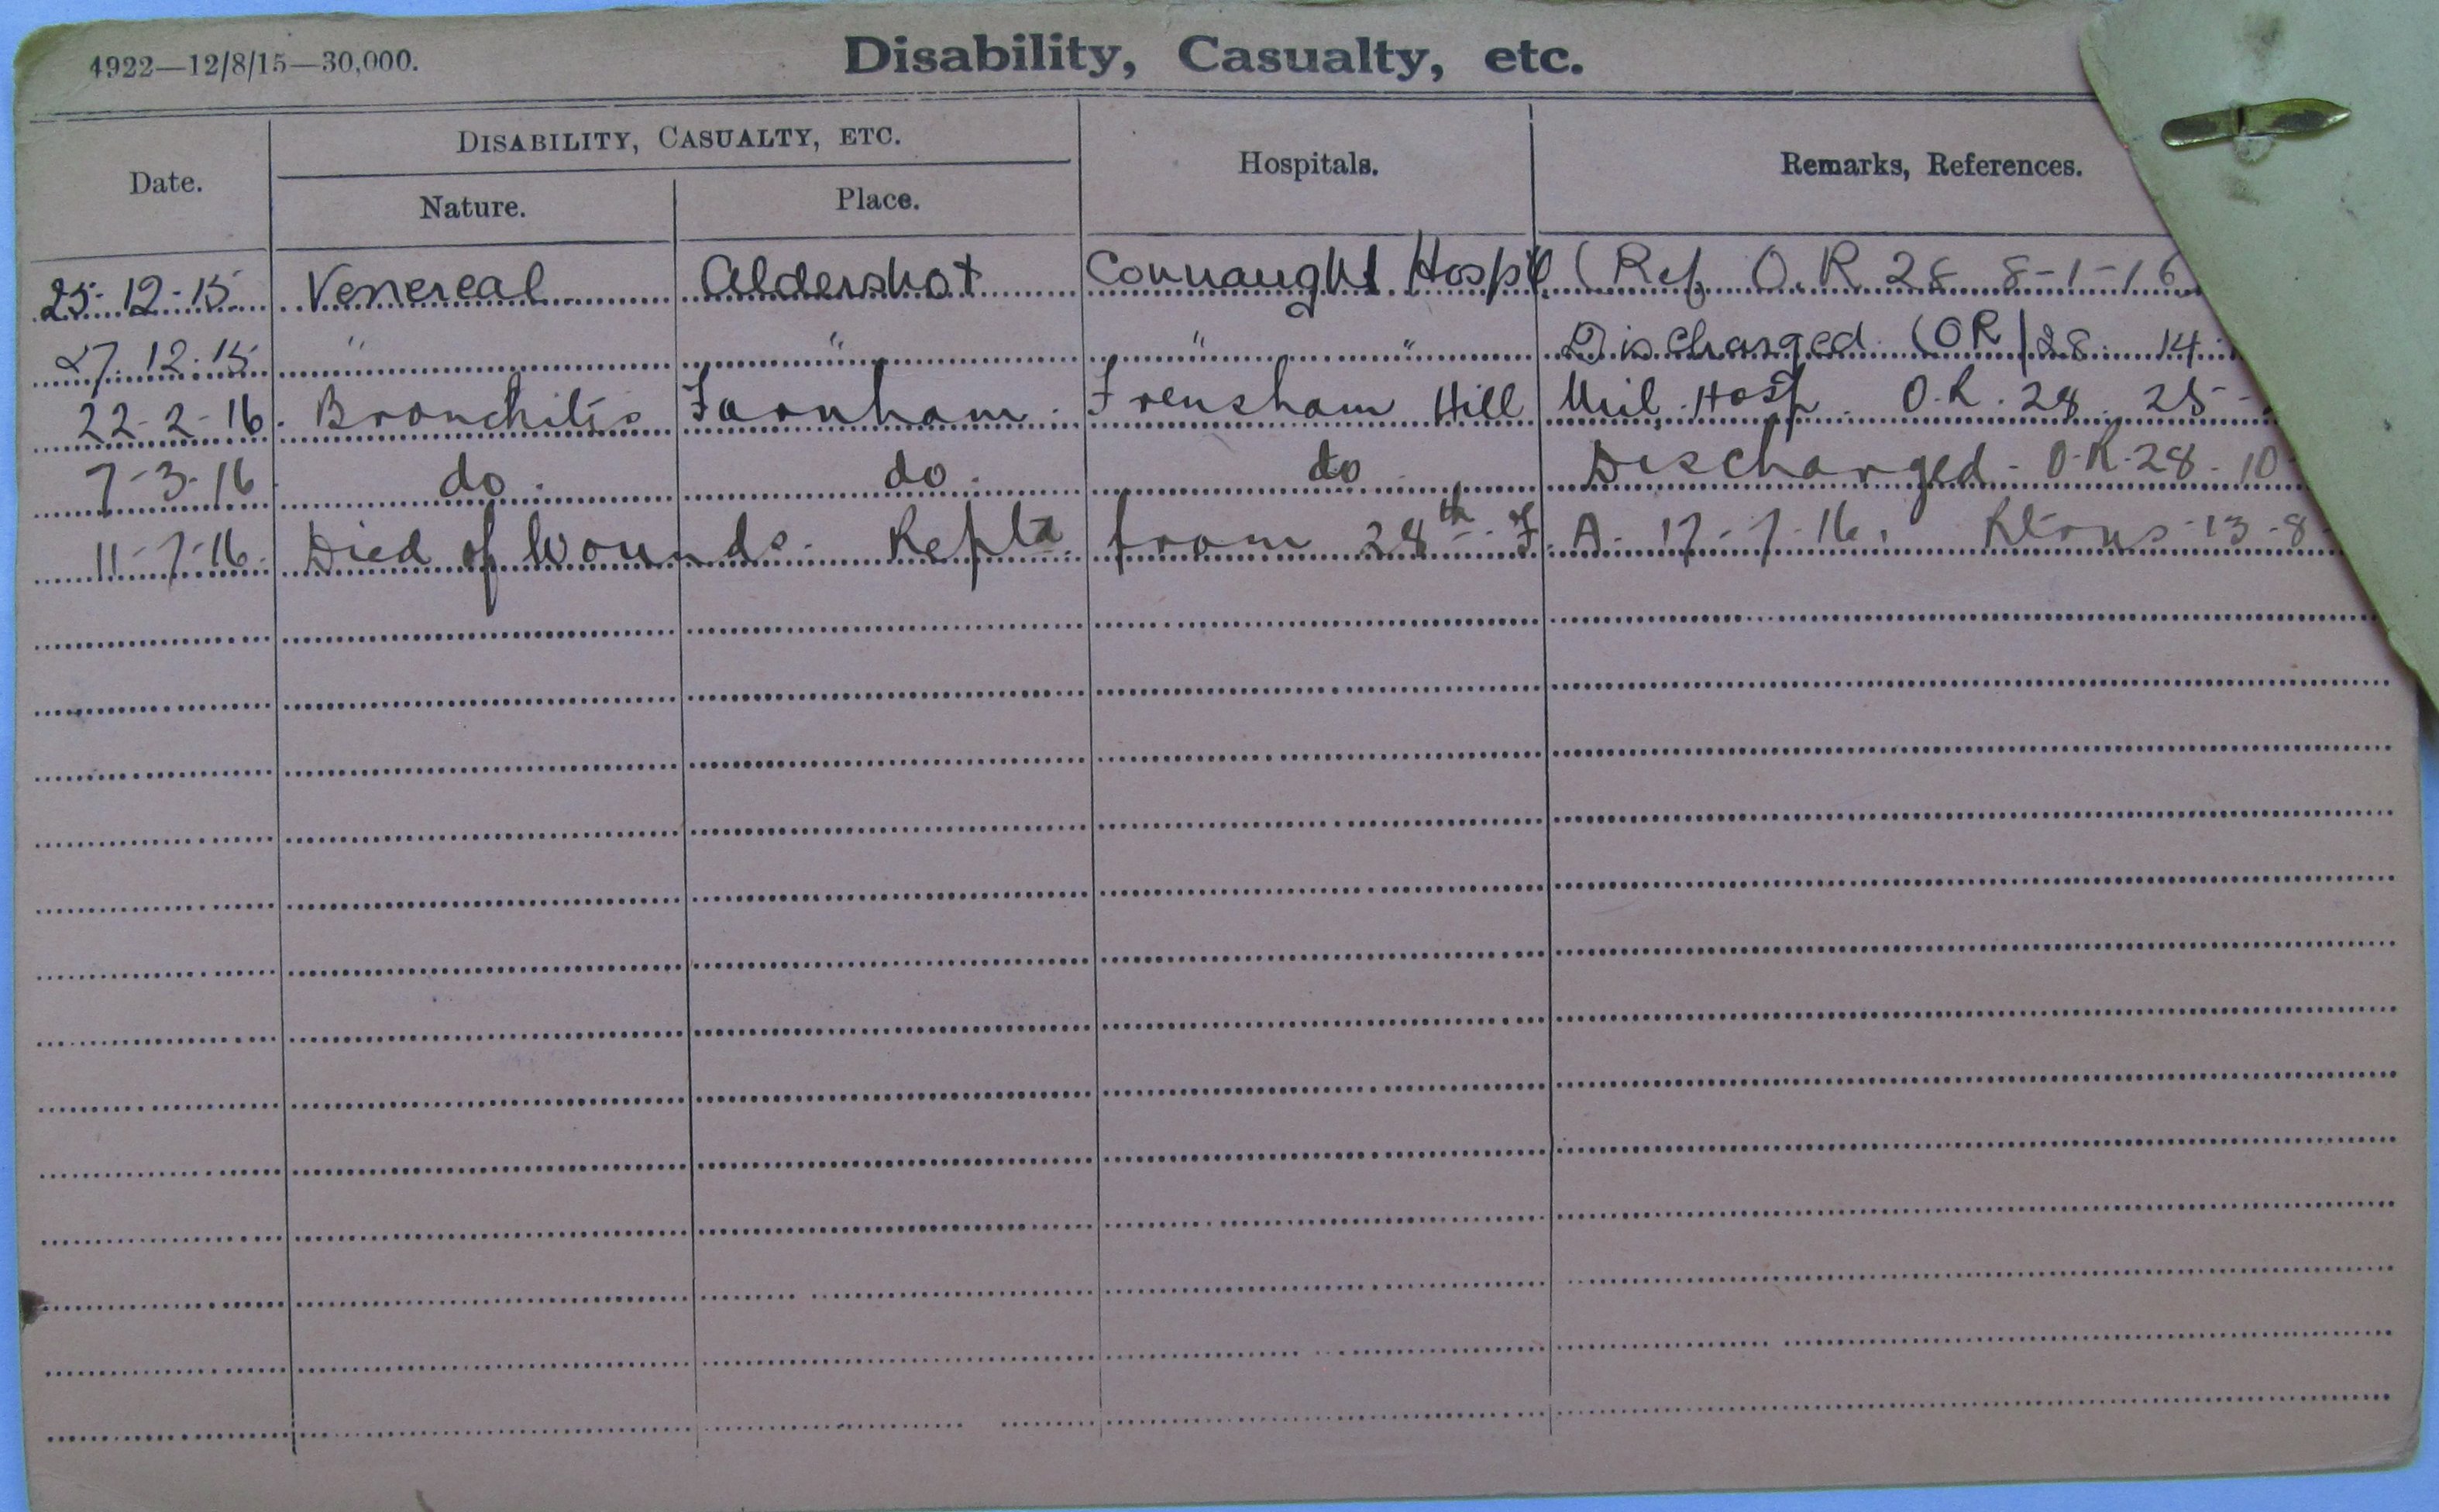 4922—12/8/15—30,000.
Disability, Casualty, etc.
Date.
DISABILITY, CASUALTY, ETC.
Nature.
Place.
Hospitals.
Remarks, References.
25-12-15 Venereal Aldershot Connaught Hospl (Ref. O.R 28 8-1-16
27.12.15 " " " " Discharged (OR/28. 14
22-2-16. Bronchitis Farnham. Frensham Hill Mil. Hosp. O.R. 28. 25-
7-3-16 do. do. do Discharged - O.R. 28 - 10
11-7-16. Died of Wounds. Reptd. from 28th F. A. 17-7-16. 13-8-